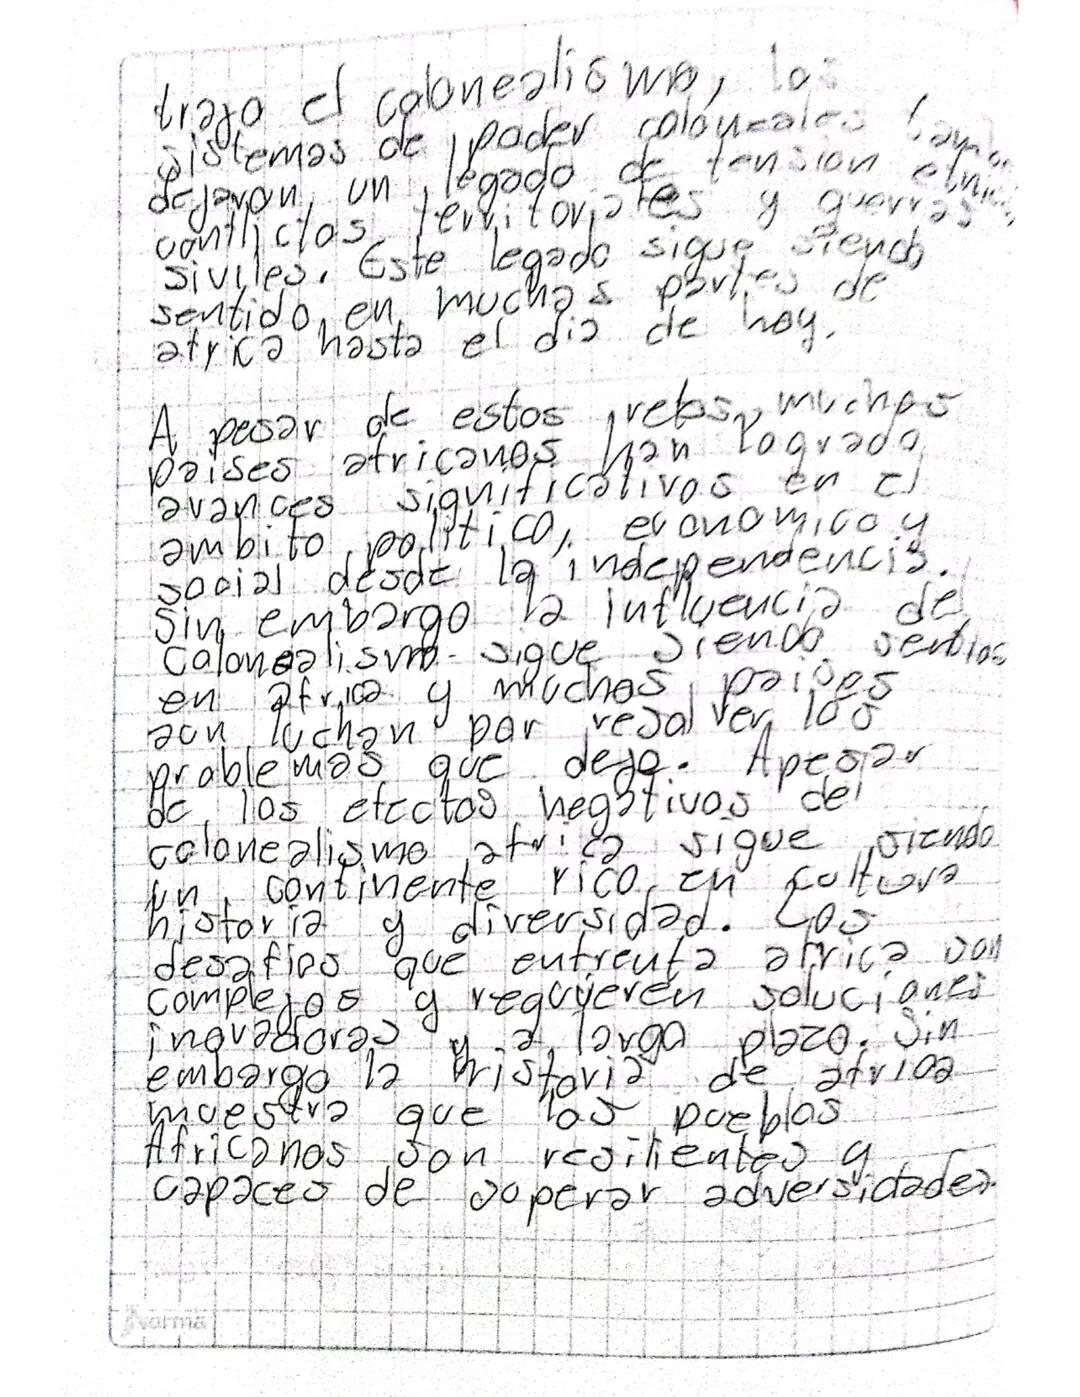 trajo el colonealismo, los
sistemas de poder coloneales
dejaron un legado de tension
conflictos territoriales y guerras
siviles. Este legado sigue siendo
sentido en muchas partes de
africa hasta el dia de hoy.
A pesar de estos retos, muchos
paises africanos han logrado
avances significativos en el
ambito politico, economico y
social desde la independencia.
Sin embargo la influencia del
colonealismo sigue siendo
en africa y muchos paises
aun luchan por resolver los
problemas que dejo. Apesar
de los efectos negativos del
colonealismo africa sigue siendo
un continente rico en cultura
historia y diversidad. Los
desafios que enfrenta africa son
complejos y requieren soluciones
inovadoras y a largo plazo. Sin
embargo la historia de africa
muestra que los pueblos
Africanos son resilientes y
capaces de superar adversidades.
Norma